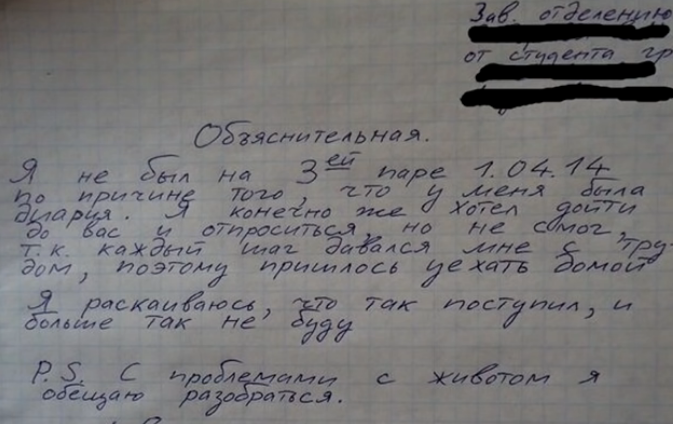 Зав. отделению
от студента гр
Объяснительная.
Я не был на 3ей паре 1.04.14
по причине того, что у меня была
диария. Я конечно же хотел дойти
до вас и отпроситься, но не смог,
т.к. каждый шаг давался мне с тру-
дом, поэтому пришлось уехать домой
Я раскаиваюсь, что так поступил, и
больше так не буду
P.S. С проблемами с животом я
обещаю разобраться.